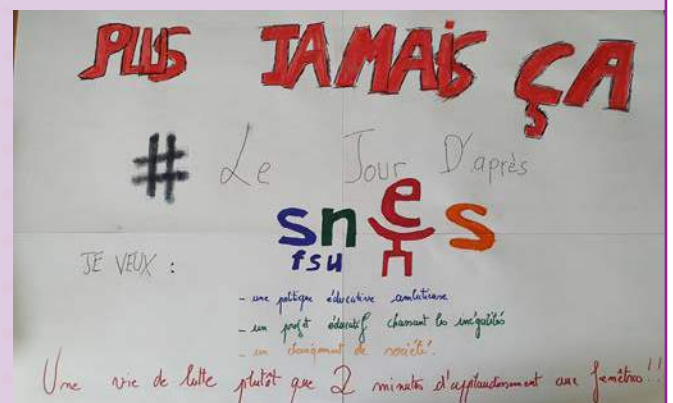 PLUS JAMAIS ÇA
# Le Jour D'après
snes
fsu
JE VEUX :
- une politique éducative ambitieuse
- un projet éducatif chassant les inégalités
- un changement de société.
Une vie de lutte plutôt que 2 minutes d'applaudissement aux fenêtres!!